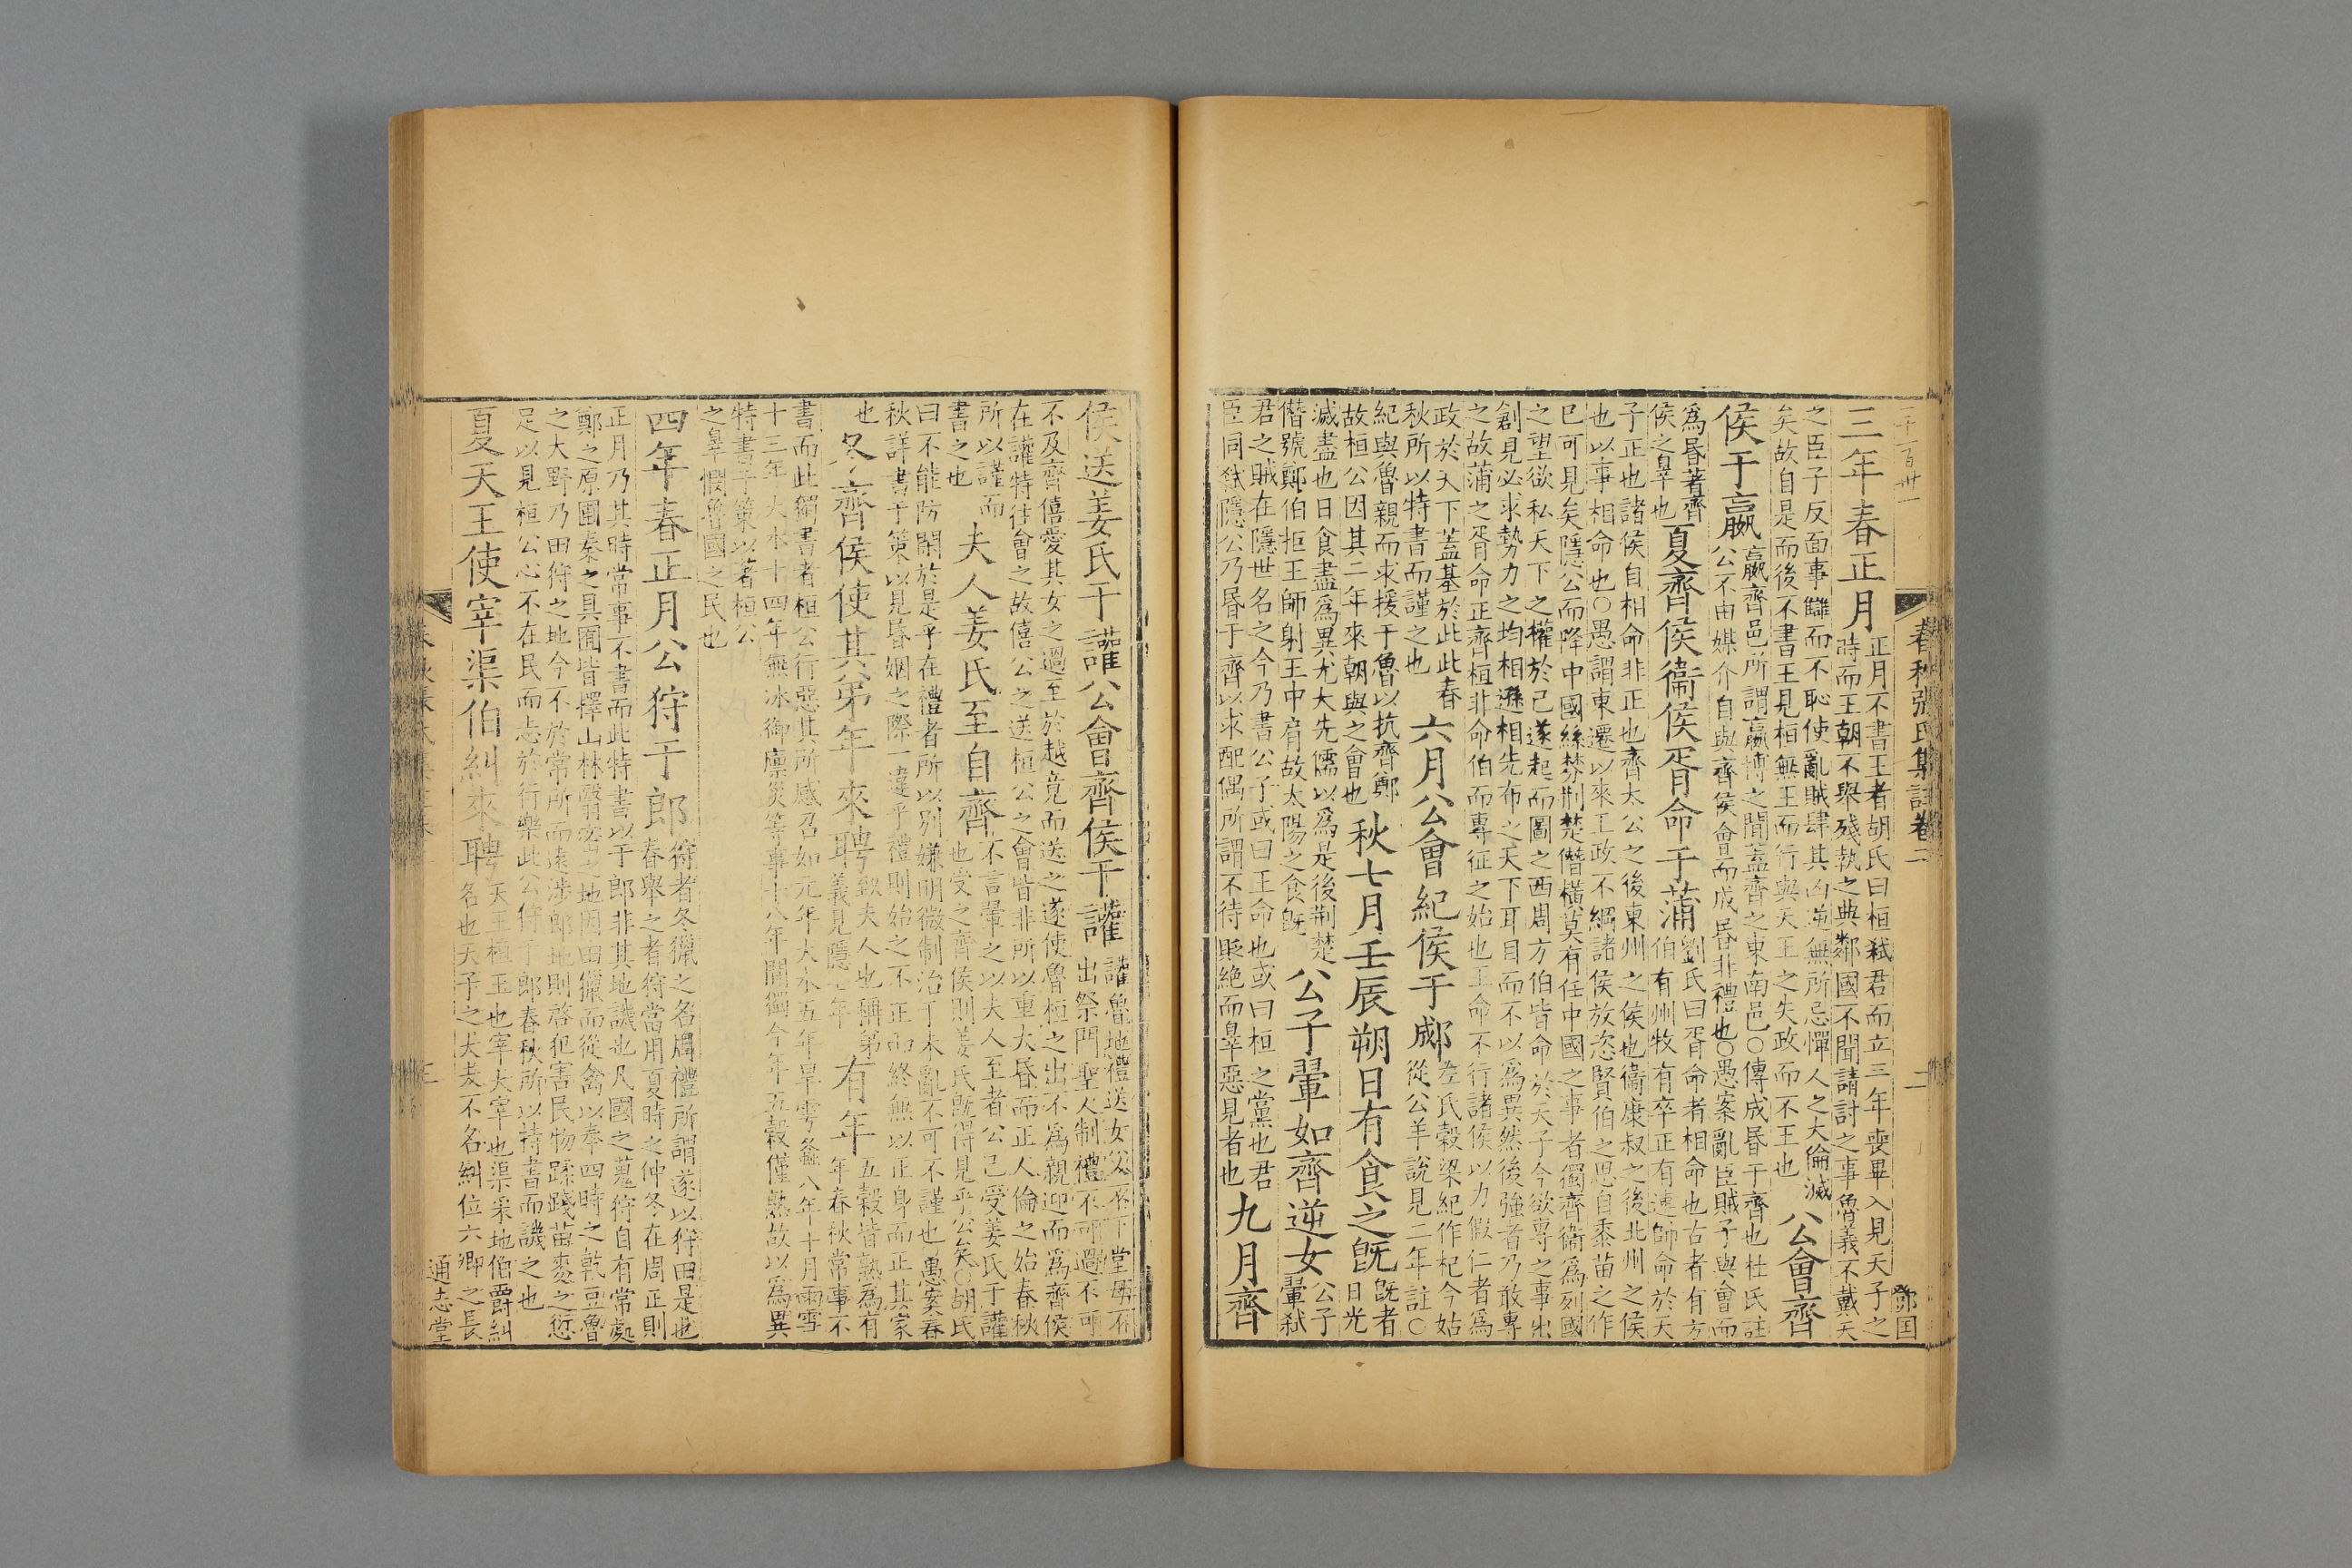 春秋張氏集註卷二
二
鄧国
三年春正月
正月不書王者胡氏曰桓弑君而立三年喪畢入見天子之
時而王朝不舉殘執之典鄰國不聞請討之事魯義不戴天
之臣子反面事讎而不恥使亂賊肆其凶逆無所忌憚人之大倫滅
矣故自是而後不書王見桓無王而行與天王之失政而不王也
公會齊
侯于嬴
嬴齊邑所謂嬴博之間蓋齊之東南邑○傳成昬于齊也杜氏註
公不由媒介自與齊侯會而成昬非禮也○愚案亂臣賊子與會而
爲昬著齊
侯之辠也
夏齊侯衞侯胥命于蒲
劉氏曰胥命者相命也古者有方
伯有州牧有卒正有連師命於天
子正也諸侯自相命非正也齊太公之後東州之侯也衞康叔之後北州之侯
也以事相命也○愚謂東遷以來王政不綱諸侯放恣賢伯之思自黍苗之作
已可見矣隱公而降中國絲棼荆楚僭橫莫有任中國之事者獨齊衞爲列國
之望欲私天下之權於己遂起而圖之西周方伯皆命於天子今欲專之事出
創見必求勢力之均相遜相先布之天下耳目而不以爲異然後強者乃敢專
之故蒲之胥命正齊桓非命伯而專征之始也王命不行諸侯以力假仁者爲
政於天下蓋基於此此春
秋所以特書而謹之也
六月公會紀侯于郕
左氏穀梁紀作杞今姑
從公羊說見二年註○
紀與魯親而求援于魯以抗齊鄭
故桓公因其二年來朝與之會也
秋七月壬辰朔日有食之旣
旣者
日光
滅盡也日食盡爲異尤大先儒以爲是後荆楚
僭號鄭伯拒王師射王中肩故太陽之食旣
公子翬如齊逆女
公子
翬弑
君之賊在隱世名之今乃書公子或曰王命也或曰桓之黨也君
臣同弑隱公乃昬于齊以求配偶所謂不待貶絶而辠惡見者也
九月齊
侯送姜氏于讙公會齊侯于讙
讙魯地禮送女父不下堂母不
出祭門聖人制禮不可過不可
不及齊僖愛其女之過至於越竟而送之遂使魯桓之出不爲親迎而爲齊侯
在讙特往會之故僖公之送桓公之會皆非所以重大昬而正人倫之始春秋
所以謹而
書之也
夫人姜氏至自齊
不言翬之以夫人至者公已受姜氏于讙
也受之齊侯則姜氏旣得見乎公矣○胡氏
曰不能防閑於是乎在禮者所以别嫌明微制治于未亂不可不謹也○愚案春
秋詳書于策以見昬姻之際一違乎禮則始之不正而終無以正身而正其家
也
冬齊侯使其弟年來聘
致夫人也稱弟
義見隱七年
有年
五穀皆熟爲有
年春秋常事不
書而此獨書者桓公行惡其所感召如元年大水五年旱雩螽八年十月雨雪
十三年大水十四年無冰御廩災等事十八年間獨今年五穀僅熟故以爲異
特書于策以著桓公
之辠憫魯國之民也
四年春正月公狩于郎
狩者冬獵之名周禮所謂遂以狩田是也
春舉之者狩當用夏時之仲冬在周正則
正月乃其時常事不書而此特書以于郎非其地譏也凡國之蒐狩自有常處
鄭之原圃秦之具囿皆擇山林翳密之地因田獵而從禽以奉四時之乾豆魯
之大野乃田狩之地今不於常所而遠涉郎地則啓犯害民物蹂踐苗麥之愆
足以見桓公心不在民而志於行樂此公狩于郎春秋所以特書而譏之也
夏天王使宰渠伯糾來聘
天王桓王也宰大宰也渠采地伯爵糾
名也天子之大夫不名糾位六卿之長
通志堂